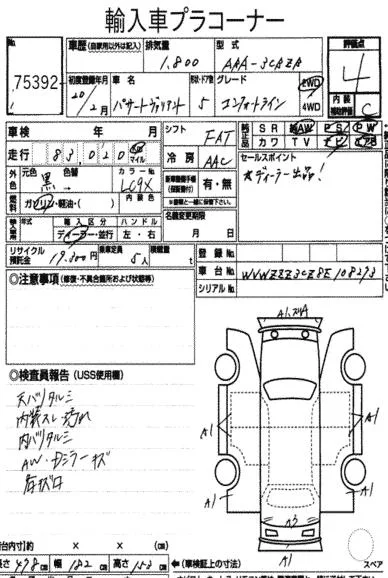 輸入車プラコーナー
No.
75392
車歴(自家用以外は記入)
排気量
1,800
型式
AAA-3CAZA
評価点
4
初度登録年月
20/2月
車名
パサートヴァリアント
形状・ドア数
5
グレード
コンフォートライン
2WD
4WD
内装
補助評価
C
車検 年 月
シフト
FAT
純正品
SR AW PS PW
カワ TV
走行 83,020 km マイル
冷房
AAC
セールスポイント
☆ディーラー出品!
外色
元色
黒
色替
→
カラーNo.
LC9X
内装色
燃料
ガソリン・軽油・( )
有・無
輸入車
年式
輸入区分
ディーラー・並行
ハンドル
左・右
名義変更期限
月 日
リサイクル預託金
17,800円
乗車定員
5人
積載量
t
登録No.
車台No.
WVWZZZ3CZ8E108273
シリアルNo.
◎注意事項(修復・不具合箇所および状態等)
◎検査員報告(USS使用欄)
天バリタルミ
内装スレ・汚れ
内バリタルミ
AW・Dミラーキズ
A1
A1
A1
A1
A1
台内寸)約 × × (cm)
長さ 478 cm 幅 182 cm 高さ 152 cm
←(車検証上の寸法)
スペア